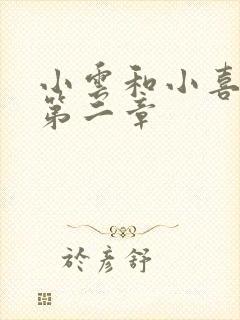 小雲和小喜
第二章
於彥舒